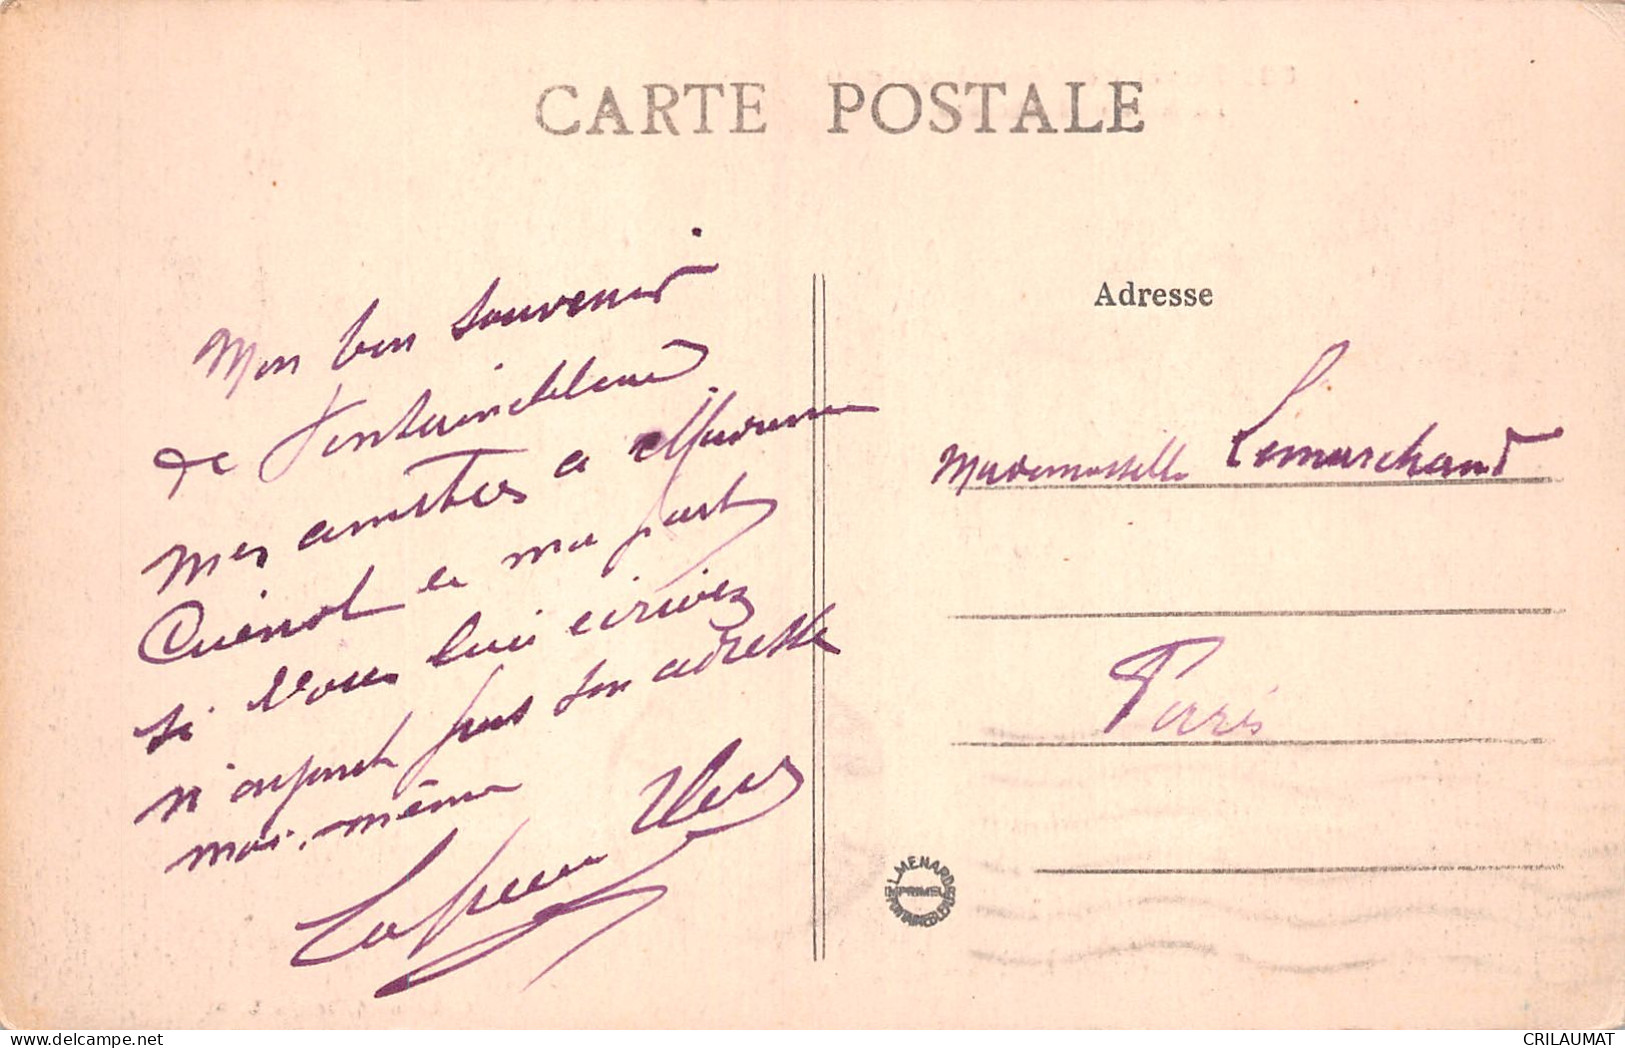 CARTE POSTALE
Mon bon souvenir
de Fontainebleau
mes amitiés a Maurice
Cuénot de ma part
si vous lui écrivez
n'ayant pas son adresse
moi-même
Adresse
Mademoiselle Lemarchand
Paris
L. MENARD
IMPRIMEUR
FONTAINEBLEAU
CRILAUMAT